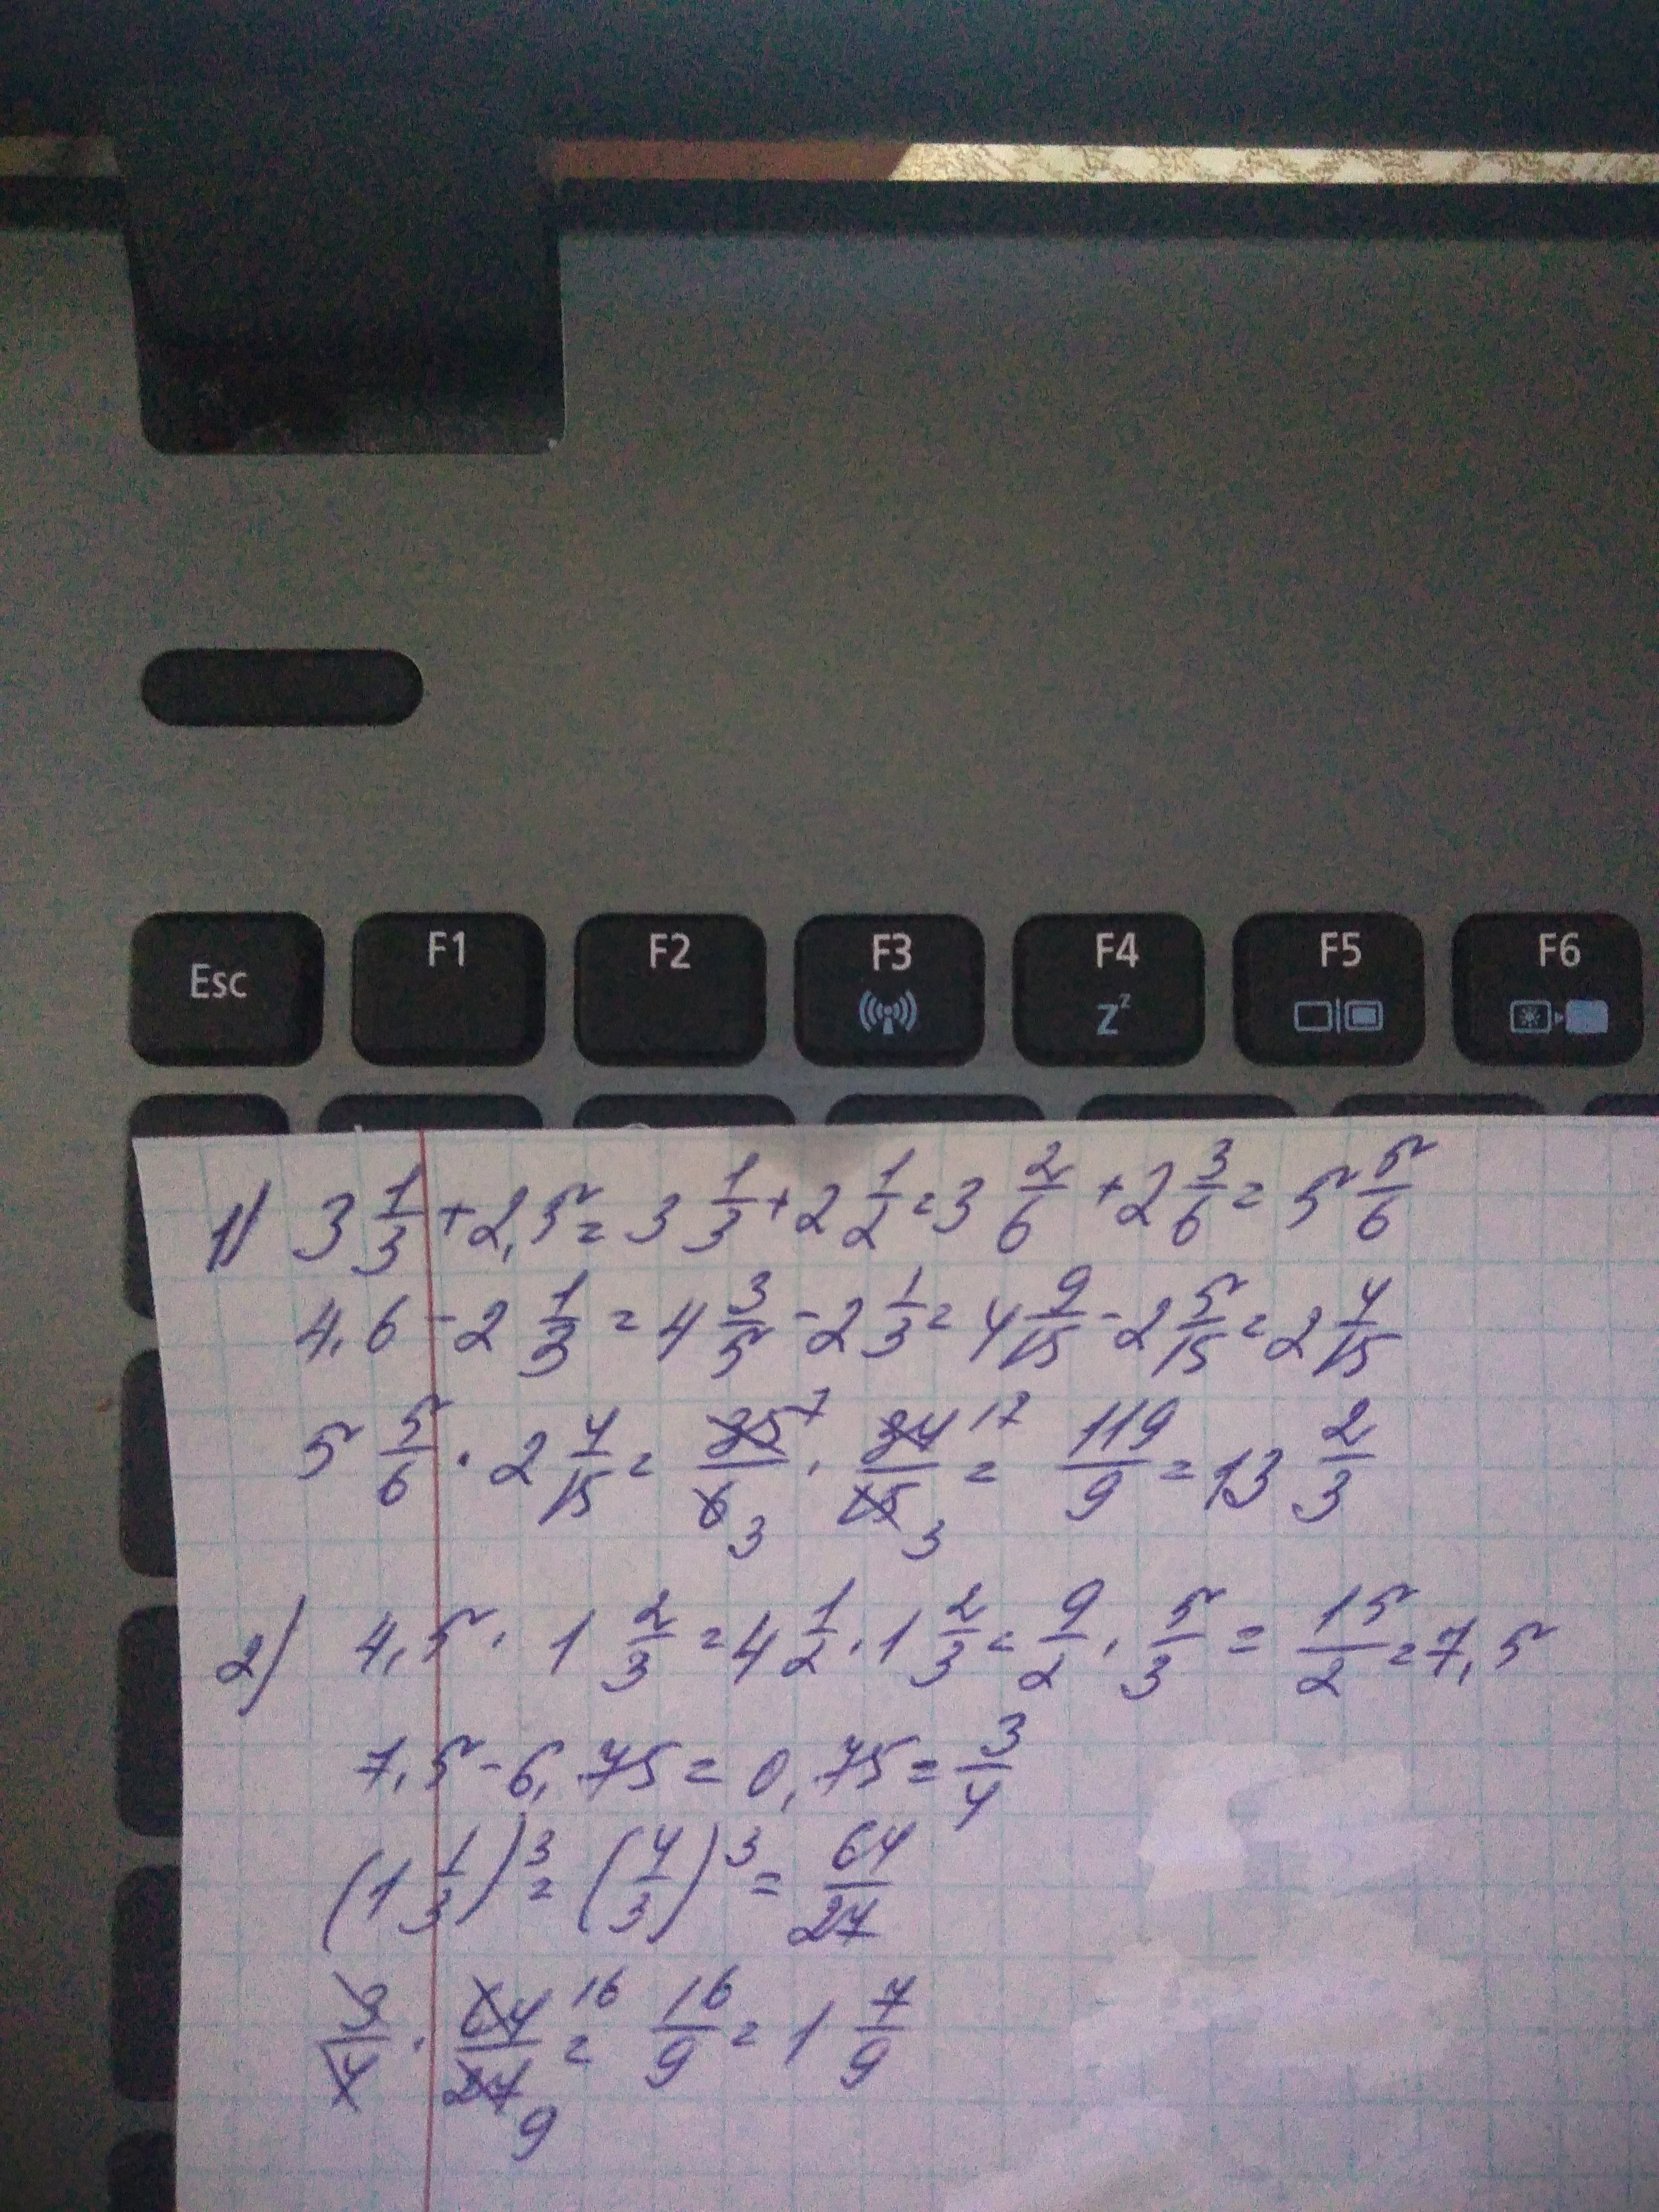 Esc F1 F2 F3 F4 F5 F6
Zz
1) 3 1/3 + 2,5 = 3 1/3 + 2 1/2 = 3 2/6 + 2 3/6 = 5 5/6
4,6 - 2 1/3 = 4 3/5 - 2 1/3 = 4 9/15 - 2 5/15 = 2 4/15
5 5/6 · 2 4/15 = 35/6 7 3 · 34/15 17 3 = 119/9 = 13 2/3
2) 4,5 · 1 2/3 = 4 1/2 · 1 2/3 = 9/2 · 5/3 = 15/2 = 7,5
7,5 - 6,75 = 0,75 = 3/4
(1 1/3)³ = (4/3)³ = 64/27
3/4 · 64/27 16 9 = 16/9 = 1 7/9